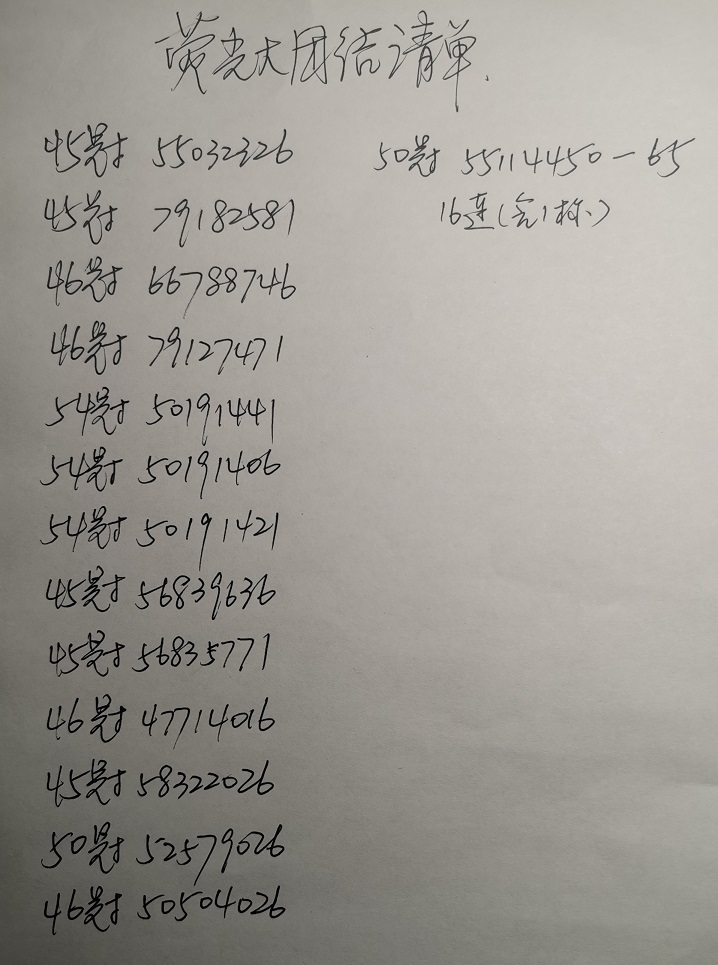 荧光大团结清单.
45冠 55032326
45冠 79182581
46冠 66788746
46冠 79127471
54冠 50191441
54冠 50191406
54冠 50191421
45冠 56839636
45冠 56835771
46冠 47714016
45冠 58322026
50冠 52579026
46冠 50504026
50冠 55114450-65
16连(含1标)